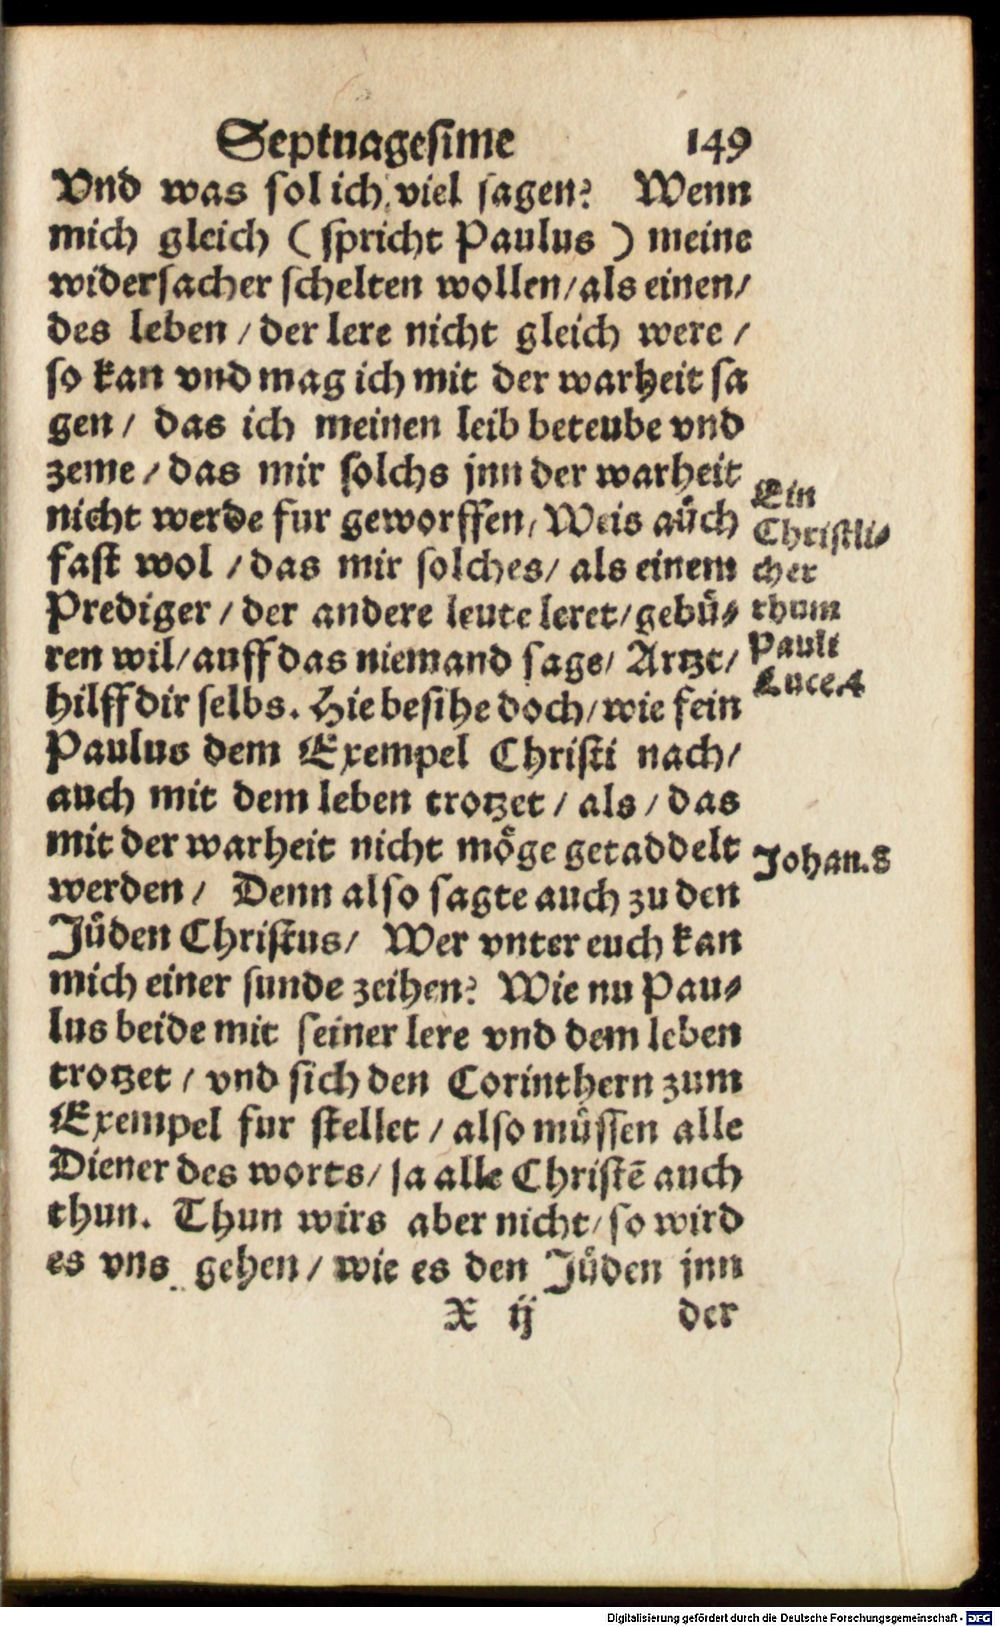 Septuagesime 149
Vnd was sol ich viel sagen? Wenn
mich gleich ( spricht Paulus ) meine
widersacher schelten wollen/als einen/
des leben / der lere nicht gleich were /
so kan vnd mag ich mit der warheit sa
gen / das ich meinen leib beteube vnd
zeme / das mir solchs jnn der warheit
nicht werde fur geworffen, Weis auch
fast wol / das mir solches/ als einem
Prediger / der andere leute leret/gebuͤ⸗
ren wil/auff das niemand sage/ Artzt/
hilff dir selbs. Hie besihe doch/wie fein
Paulus dem Exempel Christi nach/
auch mit dem leben trotzet / als / das
mit der warheit nicht moͤge getaddelt
werden / Denn also sagte auch zu den
Juͤden Christus/ Wer vnter euch kan
mich einer sunde zeihen? Wie nu Pau⸗
lus beide mit seiner lere vnd dem leben
trotzet / vnd sich den Corinthern zum
Exempel fur stellet / also muͤssen alle
Diener des worts/ ja alle Christē auch
thun. Thun wirs aber nicht/so wird
es vns gehen / wie es den Juͤden jnn
X ij der
Ein
Christli⸗
cher
thum
Pauli
Luce.4
Johan.8
Digitalisierung gefördert durch die Deutsche Forschungsgemeinschaft - DFG